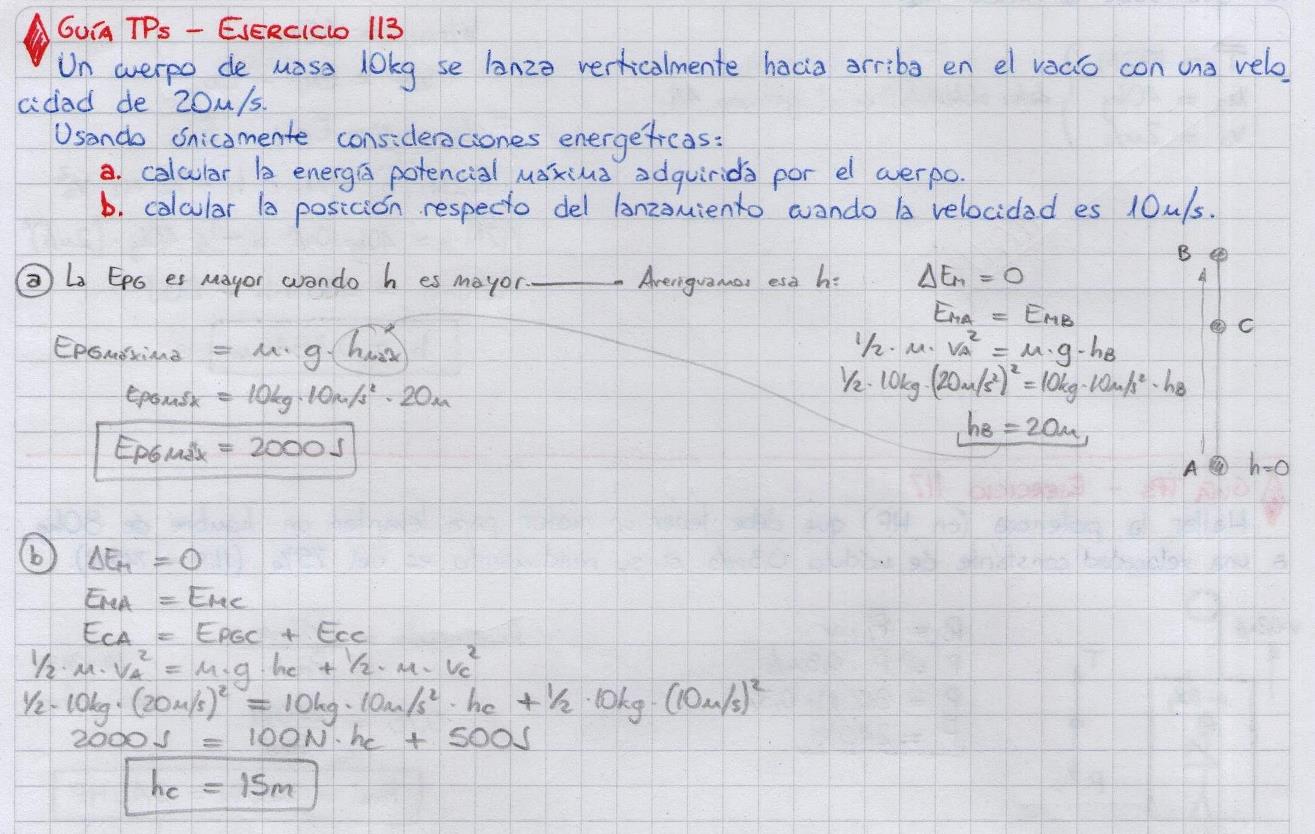 GUÍA TPs - EJERCICIO 113
Un cuerpo de masa 10kg se lanza verticalmente hacia arriba en el vacío con una velo
cidad de 20m/s.
Usando únicamente consideraciones energéticas:
a. calcular la energía potencial máxima adquirida por el cuerpo.
b. calcular la posición respecto del lanzamiento cuando la velocidad es 10m/s.
a La EPG es mayor cuando h es mayor. Averiguamos esa h:
EPGmáxima = m·g·hmáx
EPGmáx = 10kg·10m/s²·20m
EPGmáx = 2000J
ΔEM = 0
EMA = EMB
1/2·m·vA² = m·g·hB
1/2·10kg·(20m/s²)² = 10kg·10m/s²·hB
hB = 20m
B
C
A h=0
b ΔEM = 0
EMA = EMC
ECA = EPGC + ECC
1/2·m·vA² = m·g·hc + 1/2·m·vc²
1/2·10kg·(20m/s)² = 10kg·10m/s²·hc + 1/2·10kg·(10m/s)²
2000J = 100N·hc + 500J
hc = 15m